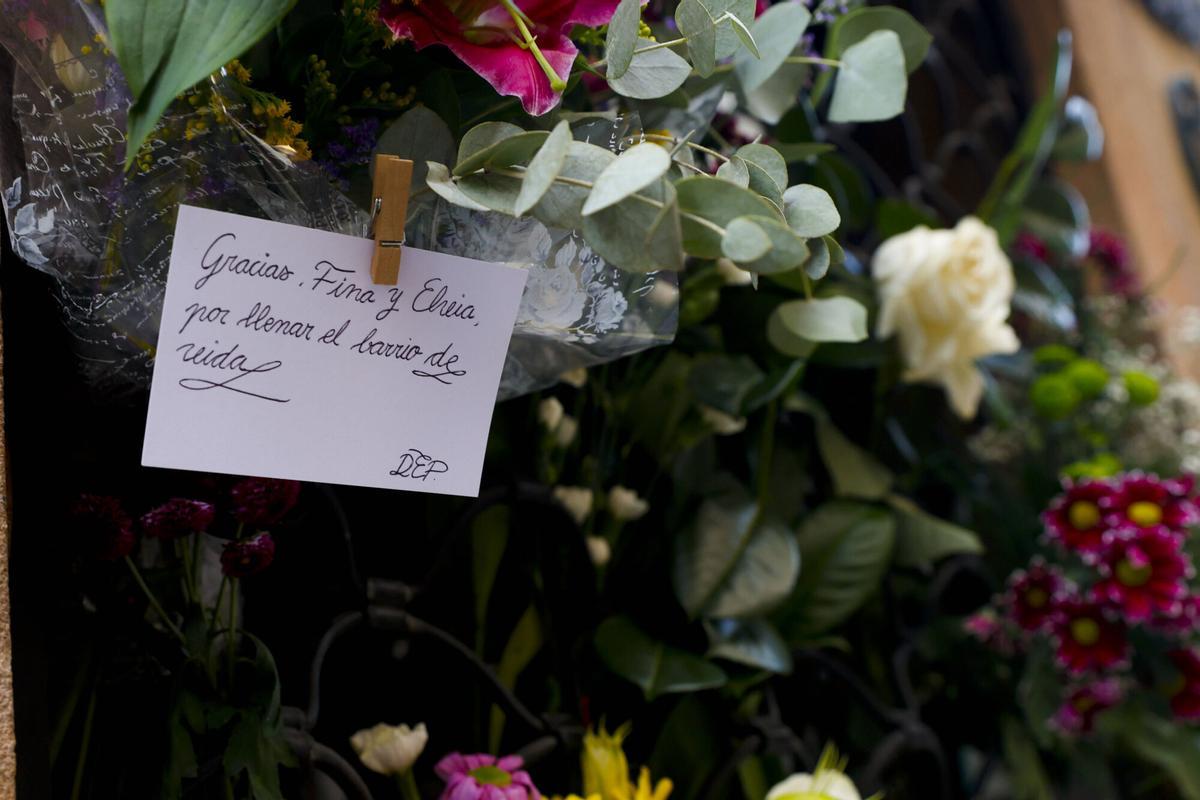 Gracias, Fina y Elvia,
por llenar el barrio de
vida
DEP.